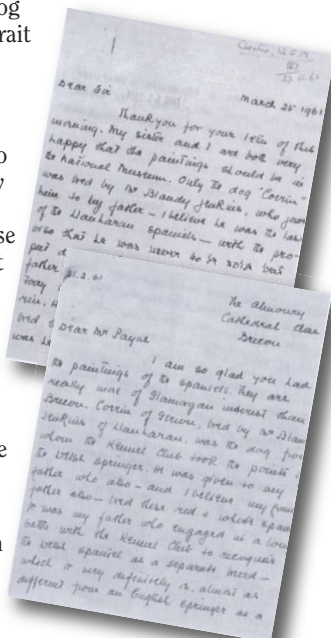 og
rait
March 25th 1961
Dear Sir
Thank you for your letter of this
morning. My sister and I are both very
happy that the paintings should be in
the National Museum. Only the dog "Corrin"
was bred by Mr Blandy Jenkins, who gave
him to my father – I believe he was the last
of the Llanharan spaniels – with the pro-
viso that he was never to be sold but
o
y
se
t
father
was
e
n
21.2.61
The Almonry
Cathedral Close
Brecon
Dear Mr Payne
I am so glad you had
the paintings of the spaniels. They are
really more of Glamorgan interest than
Brecon. Corrin of Gerwn, bred by Mr Blandy
Jenkins of Llanharan, was the dog from
whom the Kennel Club took the points of
the Welsh springer. He was given to my
father who also – and I believe my grand
father also – bred these red & white spaniels
It was my father who engaged in a long
battle with the Kennel Club to recognise
the Welsh spaniel as a separate breed –
which it very definitely is, almost as
different from an English springer as a